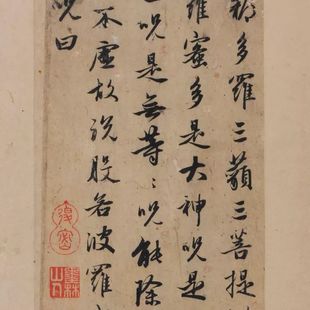 耨多羅三藐三菩提
羅蜜多是大神呪是
呪是無等〻呪能除
不虛故說般若波羅
呪曰